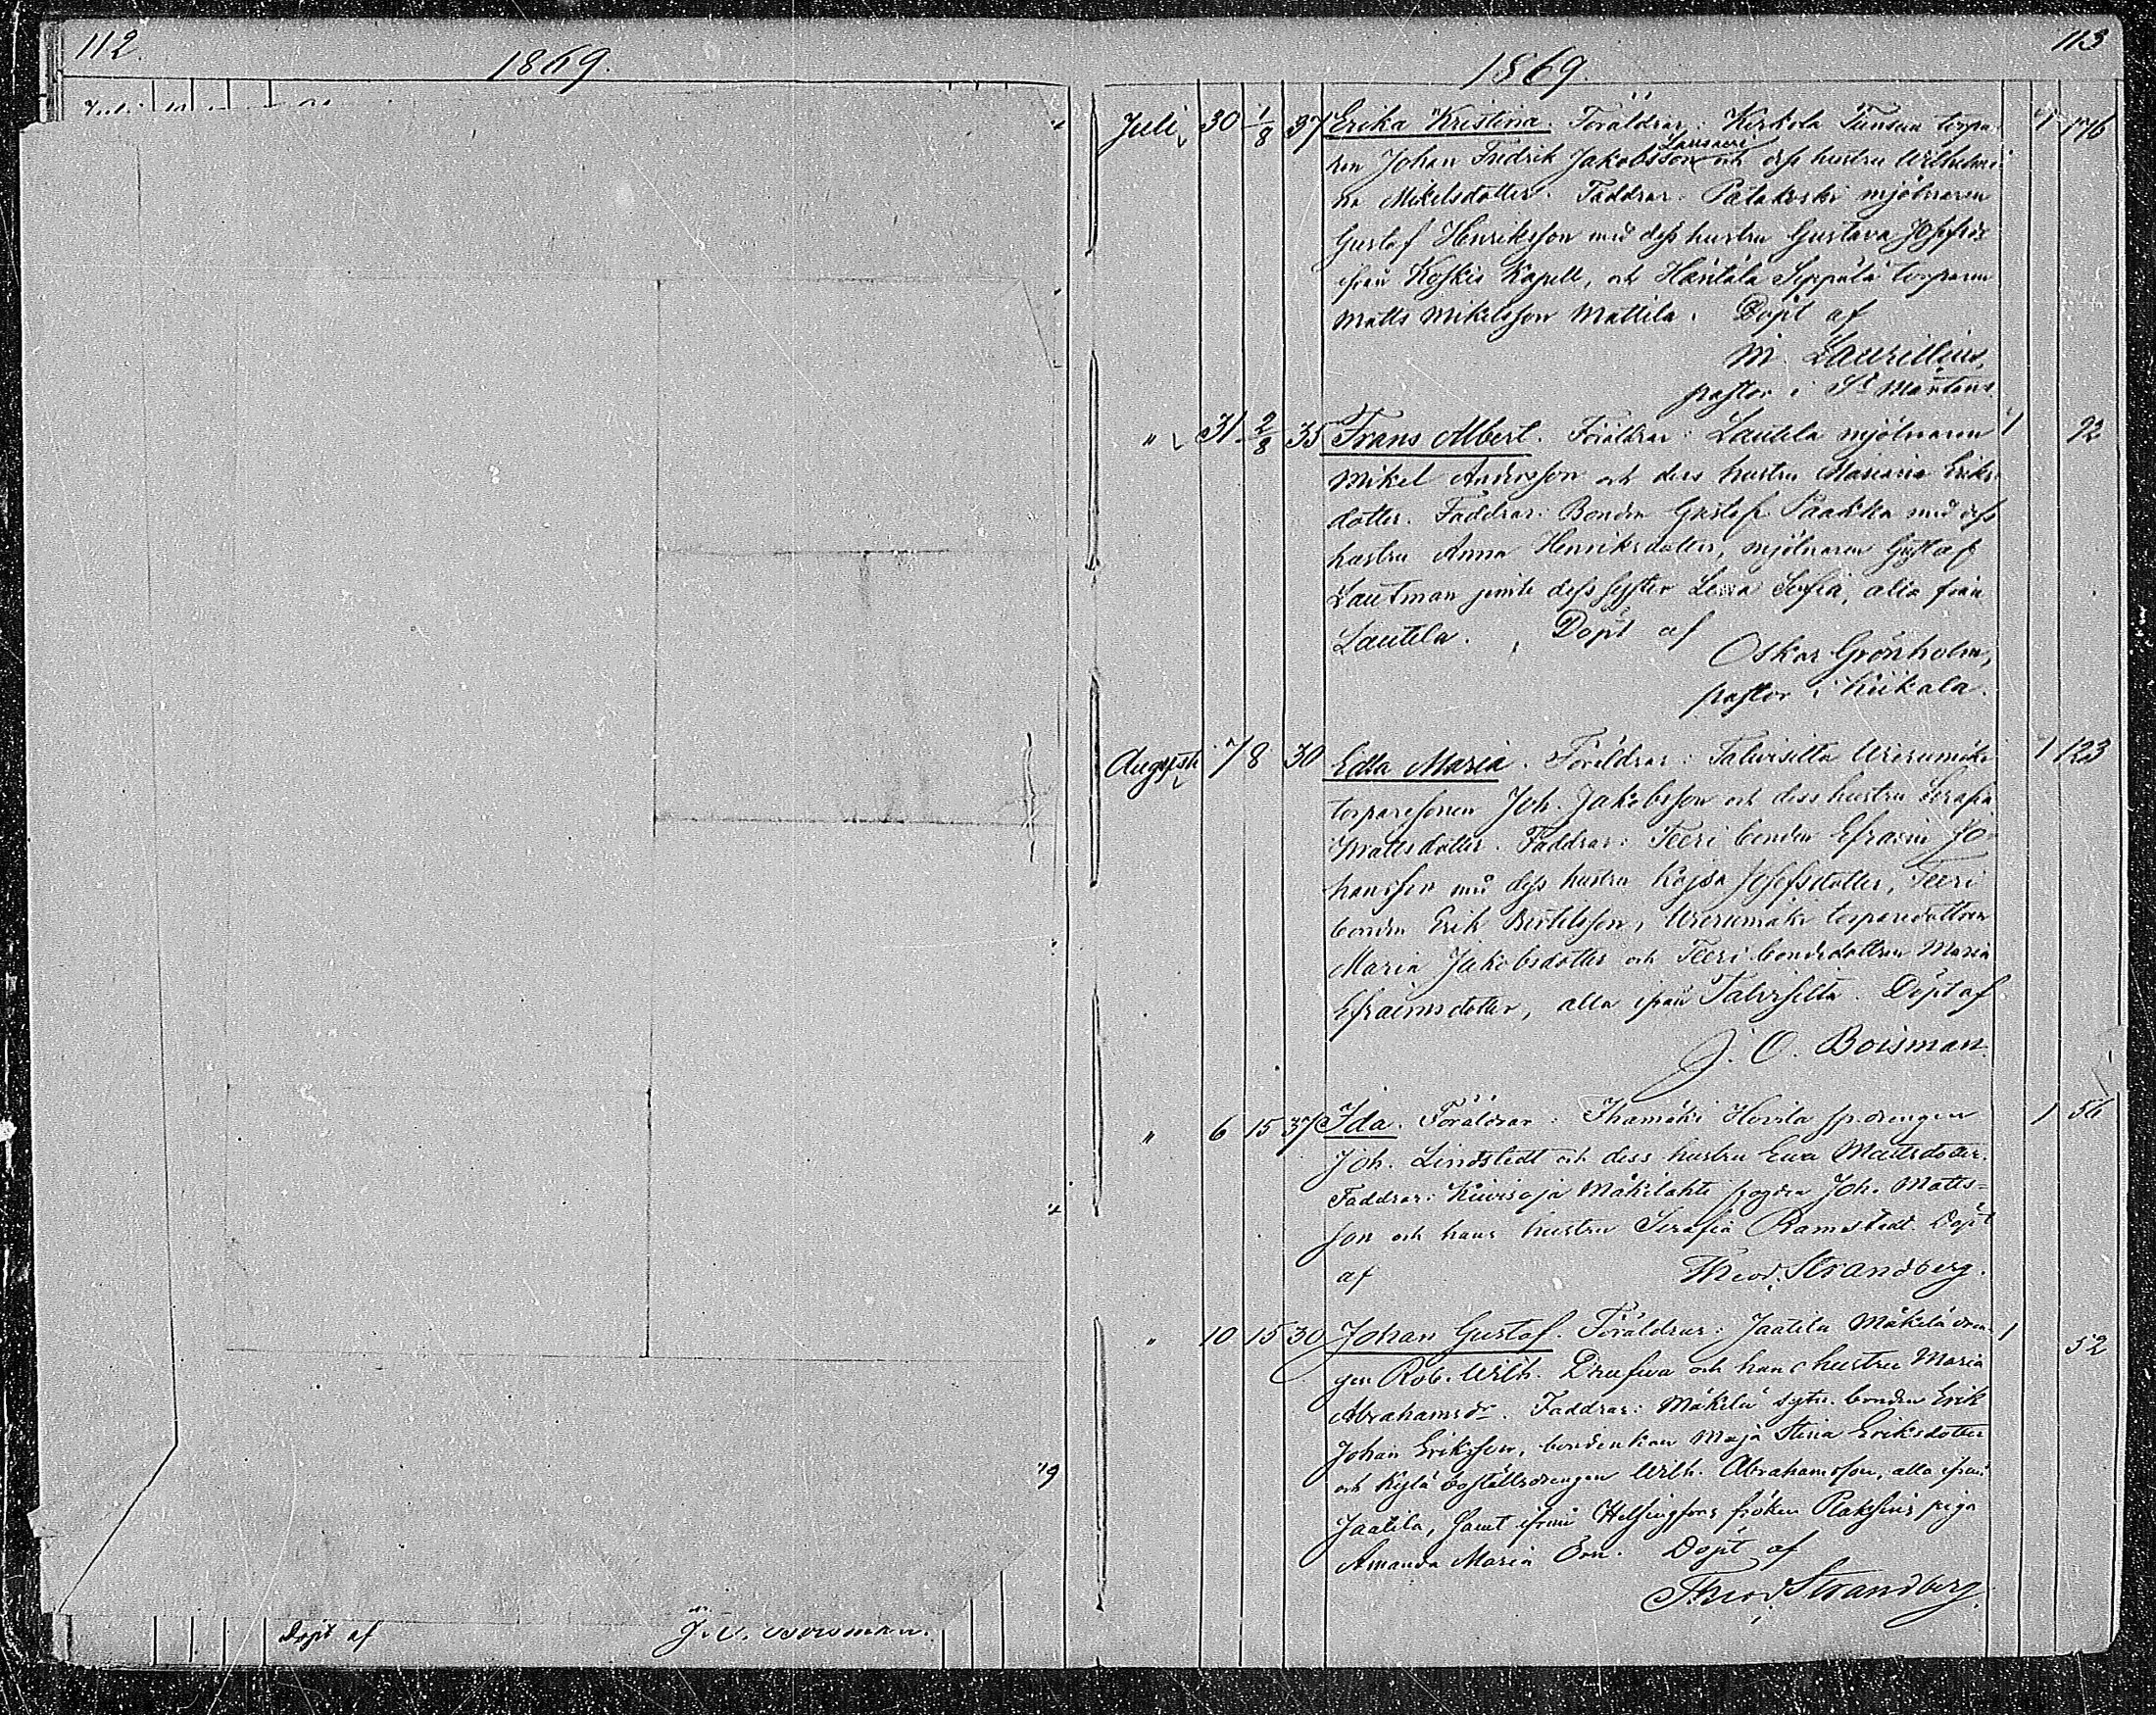 112.
1869.
Döpt af J. O. Boisman.
113
1869.
Juli 30 1/8 37 Erika Kristina. Föräldrar: Kirkola torpa-
ren Johan Fredrik Jakobsson och dess hustru Wilhelmi-
na Mikelsdotter. Faddrar: Palakoski mjölnaren
Gustaf Henriksson med dess hustru Gustava
ifrån Koskis Kapell, och Häntälä Seppälä torparen
Matts Mikelsson Mattila. Döpt af
M. Laurillius,
pastor i St Mårtens.
" 31 2/8 35 Frans Albert. Föräldrar: Lautela mjölnaren 1 92
Mikel Andersson och dess hustru Mariana Eriks-
dotter. Faddrar: Bonden Gustaf Paakka med dess
hustru Anna Henriksdotter, mjölnaren Gustaf
Lautman jemte dess syster Lena Sofia, alla från
Lautela. Döpt af
Oskar Grönholm,
pastor i Kiikala.
Augusti 7 8 30 Edla Maria. Föräldrar: Talvisilta 1 123
torparesonen Joh. Jakobsson och dess hustru Serafia
Mattsdotter. Faddrar: Teeri bonden Efraim Jo-
hansson med dess hustru Kajsa Josefsdotter, Teeri
bonden Erik Bertilsson, torparedottren
Maria Jakobsdotter och Teeri bondedottren Maria
Efraimsdotter, alla ifrån Talvisilta. Döpt af
J. O. Boisman.
" 6 15 37 Ida. Föräldrar: Ihamäki Hovila sp.drengen 1 56
Joh. Lindstedt och dess hustru Eva Mattsdotter.
Faddrar: Kiivisoja Mäkilähti Joh. Matts-
son och hans hustru Serafia Ramstedt. Döpt
af Theod. Strandberg.
" 10 15 30 Johan Gustaf. Föräldrar: Jaatila Mäkilä dren- 1 52
gen Rob. Wilh. och hans hustru Maria
Abrahamsdr. Faddrar: Mäkilä sytn. bonden Erik
Johan Eriksson, bondenkan Maja Stina Eriksdotter
och Kylä boställsdrengen Wilh. Abrahamsson, alla ifrån
Jaatila, samt ifrån Helsingfors fröken piga
Amanda Maria Örn. Döpt af
Theod. Strandberg.